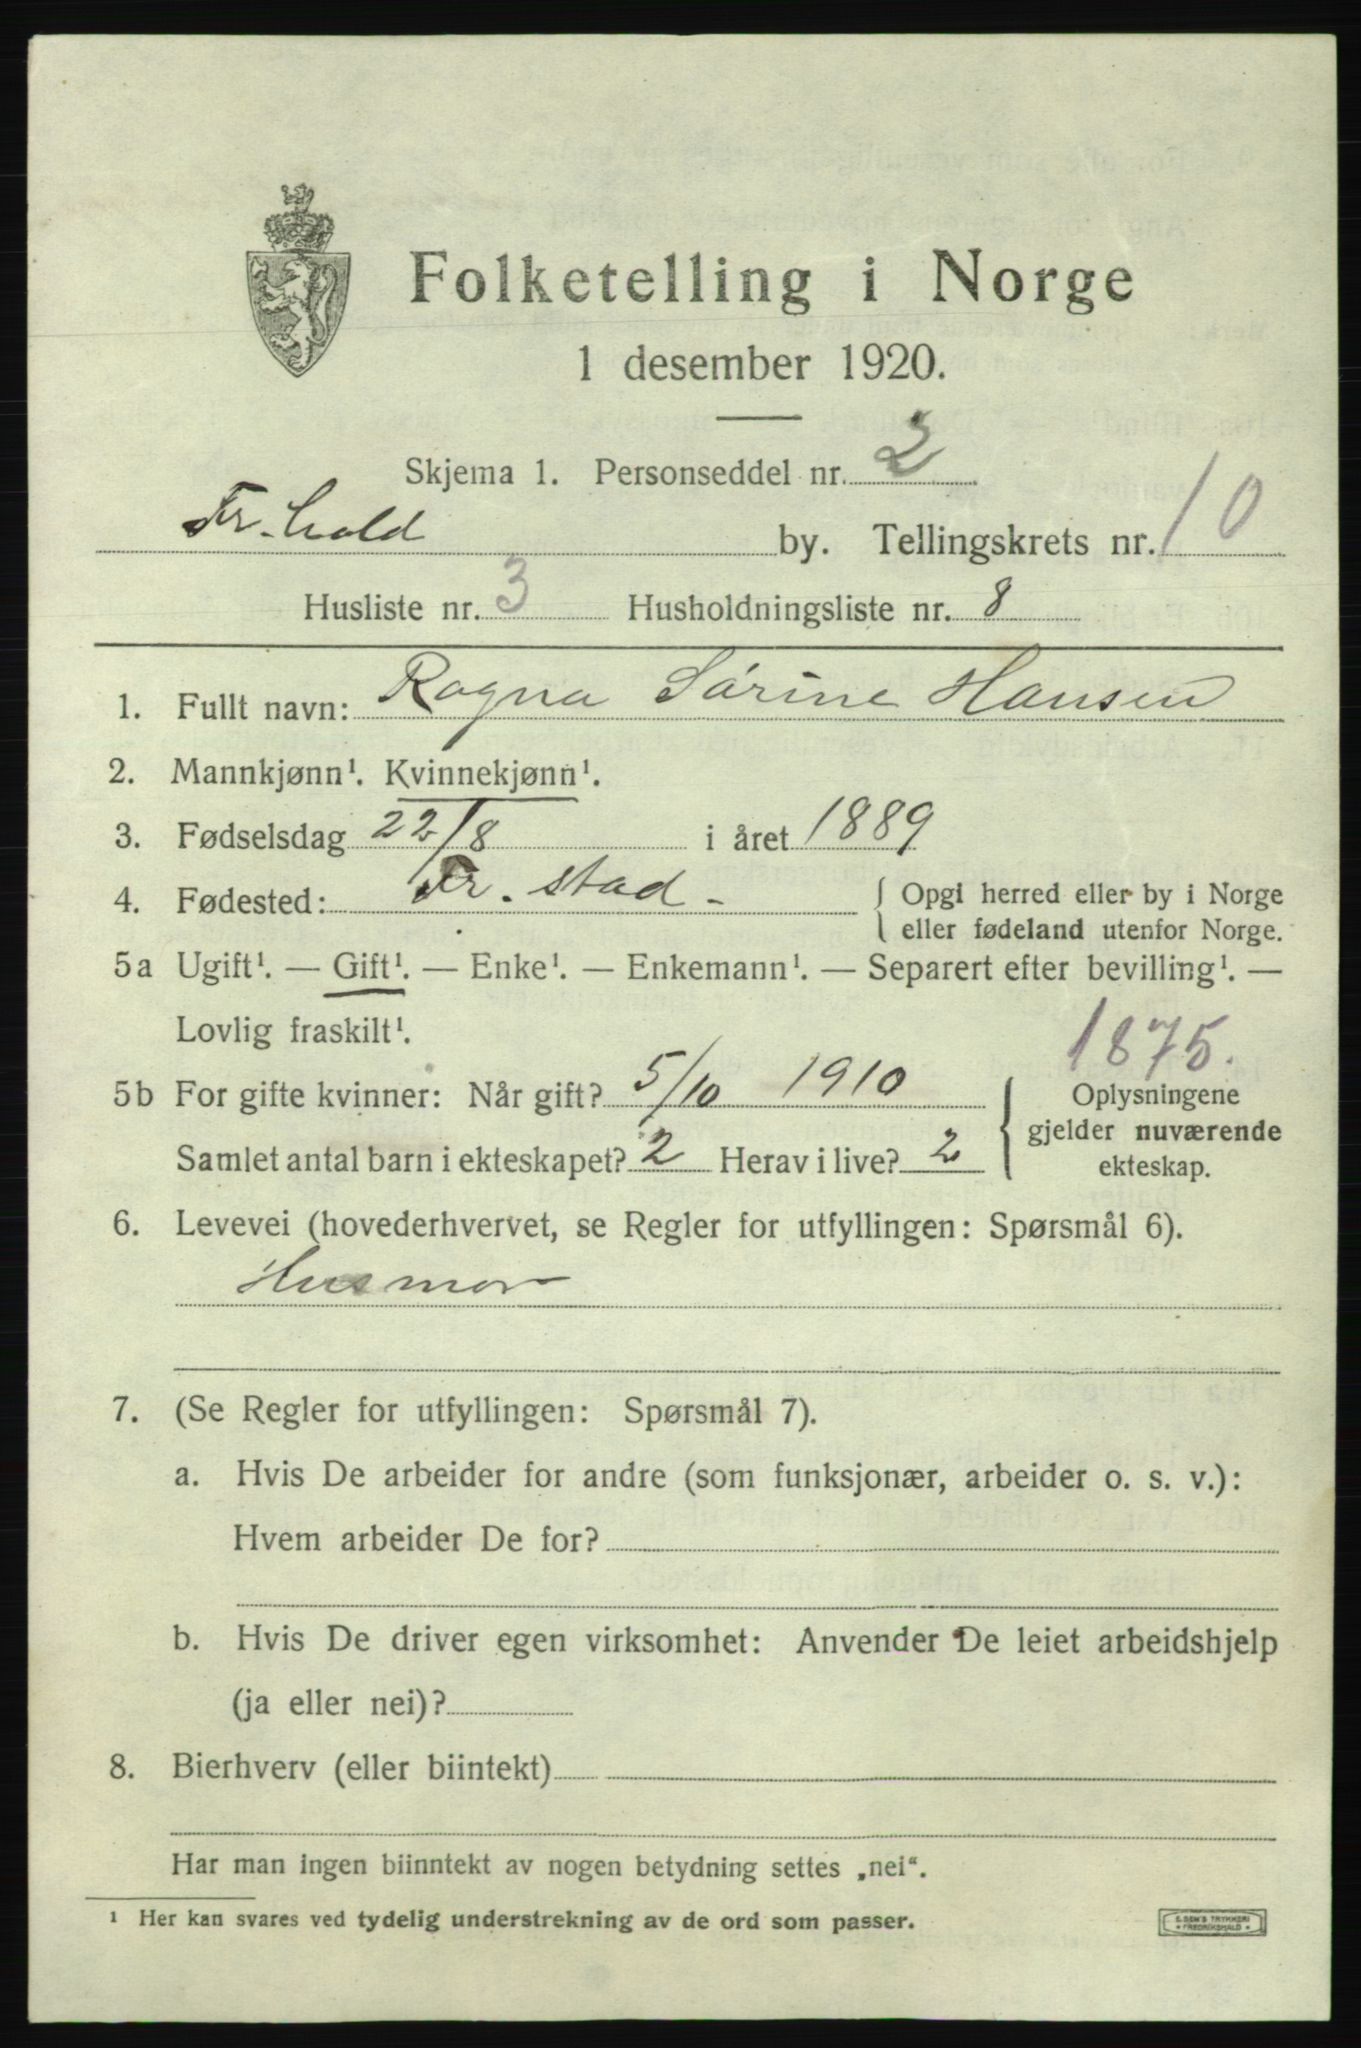 Folketelling i Norge
1 desember 1920.
Skjema 1. Personseddel nr. 2
Fr.hald by. Tellingskrets nr. 10
Husliste nr. 3 Husholdningsliste nr. 8
1. Fullt navn: Ragna Sørine Hansen
2. Mannkjønn¹. Kvinnekjønn¹.
3. Fødselsdag 22/8 i året 1889
4. Fødested: Fr.stad - { Opgi herred eller by i Norge
eller fødeland utenfor Norge.
5a Ugift¹. — Gift¹. — Enke¹. — Enkemann¹. — Separert efter bevilling¹. —
Lovlig fraskilt¹.
1875.
5b For gifte kvinner: Når gift? 5/10 1910 { Oplysningene
gjelder nuværende
Samlet antal barn i ekteskapet? 2 Herav i live? 2
ekteskap.
6. Levevei (hovederhvervet, se Regler for utfyllingen: Spørsmål 6).
Husmor
7. (Se Regler for utfyllingen: Spørsmål 7).
a. Hvis De arbeider for andre (som funksjonær, arbeider o. s. v.):
Hvem arbeider De for?
b. Hvis De driver egen virksomhet: Anvender De leiet arbeidshjelp
(ja eller nei)?
8. Bierhverv (eller biintekt)
Har man ingen biinntekt av nogen betydning settes „nei“.
¹ Her kan svares ved tydelig understrekning av de ord som passer.
E. SEM'S TRYKKERI
FREDRIKSHALD